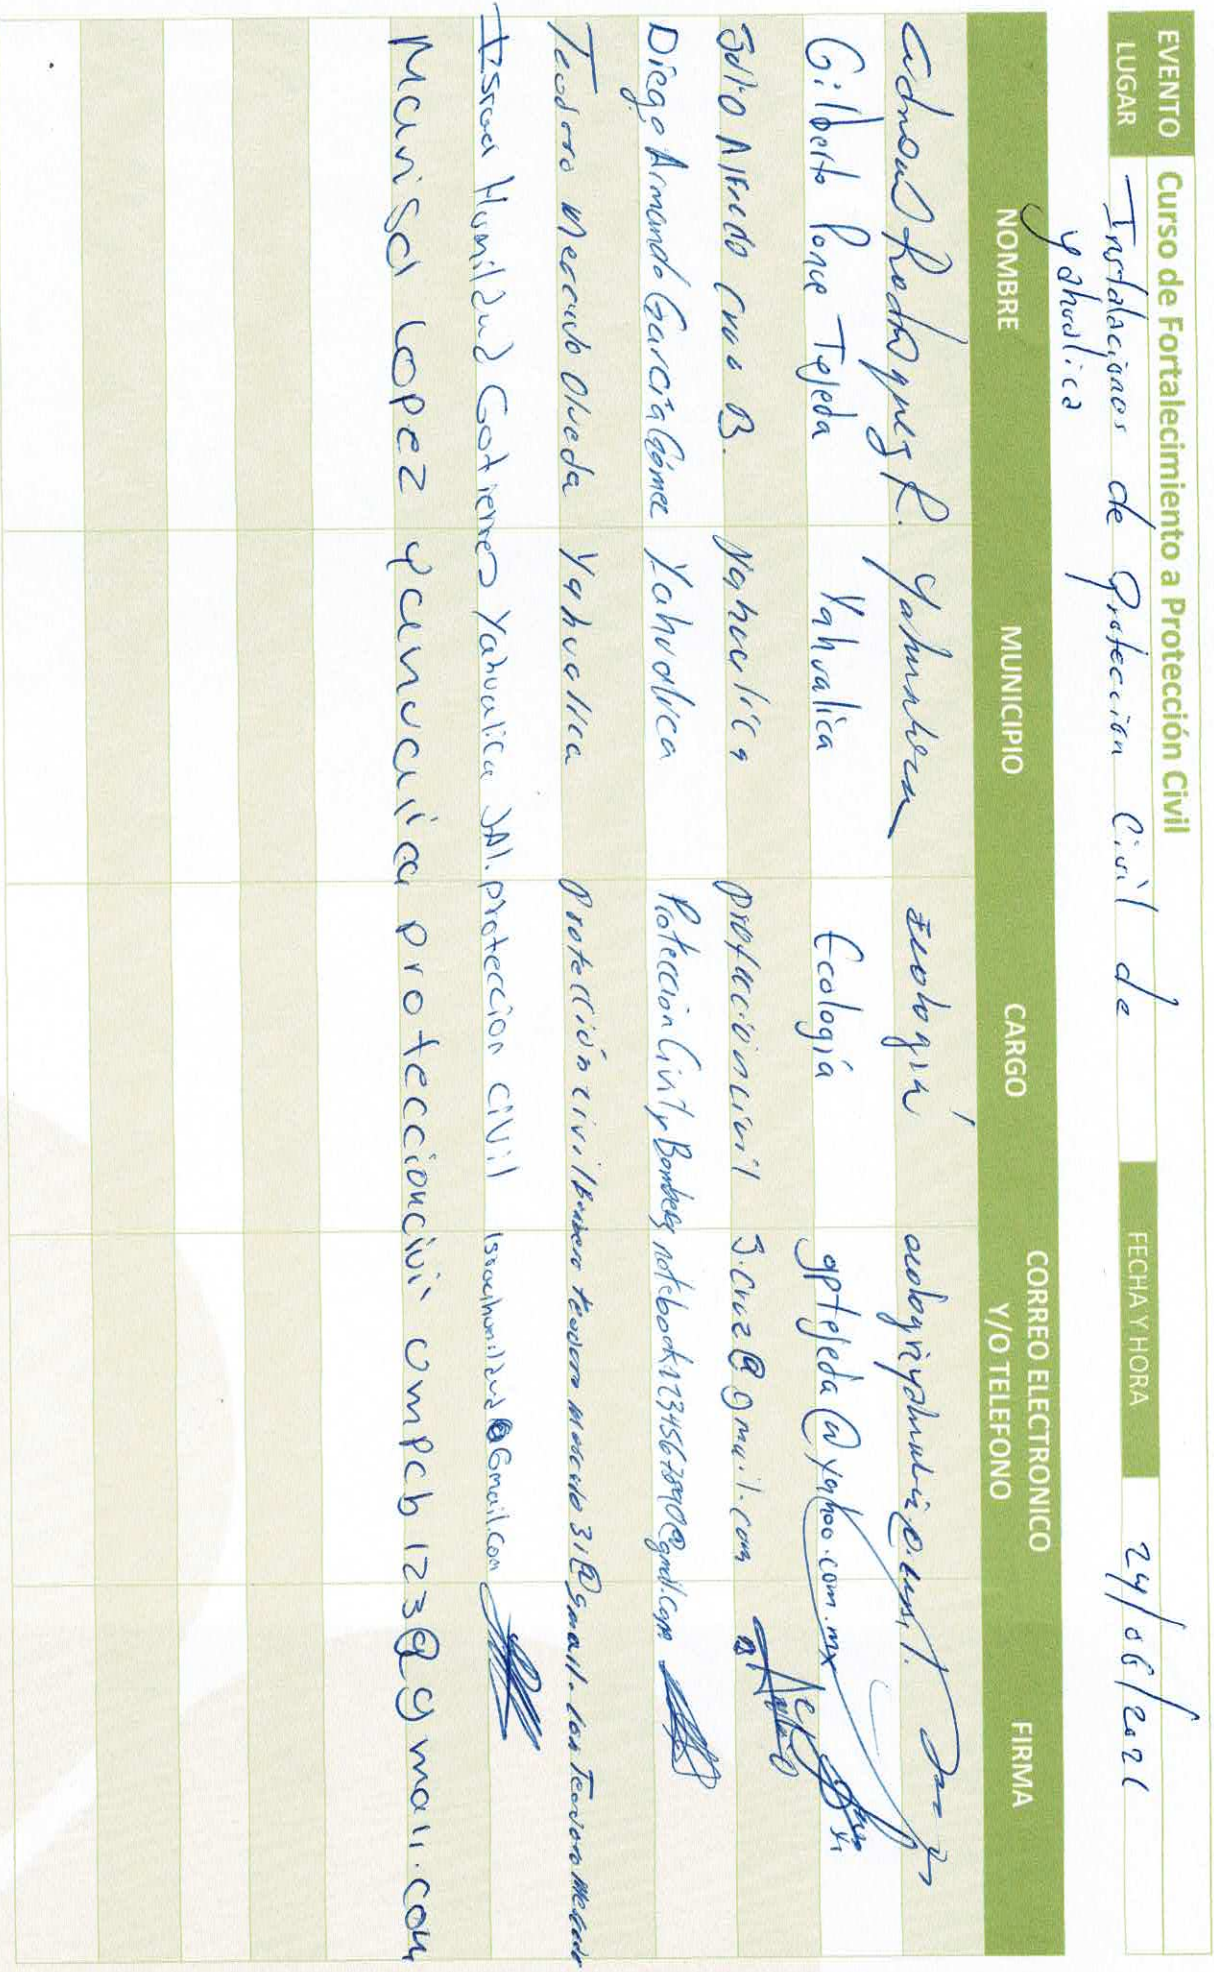 EVENTO Curso de Fortalecimiento a Protección Civil
LUGAR Instalaciones de Protección Civil de
Yahualica
FECHA Y HORA 24/06/2021
NOMBRE MUNICIPIO CARGO CORREO ELECTRONICO Y/O TELEFONO FIRMA
Rodriguez R. Ecología
Gilberto Ponce Tejeda Yahualica Ecología gptejeda@yahoo.com.mx
Julio Alfredo Cruz B. Yahualica protección civil J.cruz@gmail.com
Diego Armando García Gómez Yahualica Protección Civil y Bomberos notebook1234567890@gmail.com
Teodoro Mercado Olveda Yahualica protección civil Bombero teodoro mercado 31@gmail.com Teodoro Mercado
Israel Humildad Gotierres Yahualica JAl. proteccion civil Israelhumildad@Gmail.com
Marisa Lopez yahualica proteccioncivil umpcb123@gmail.com